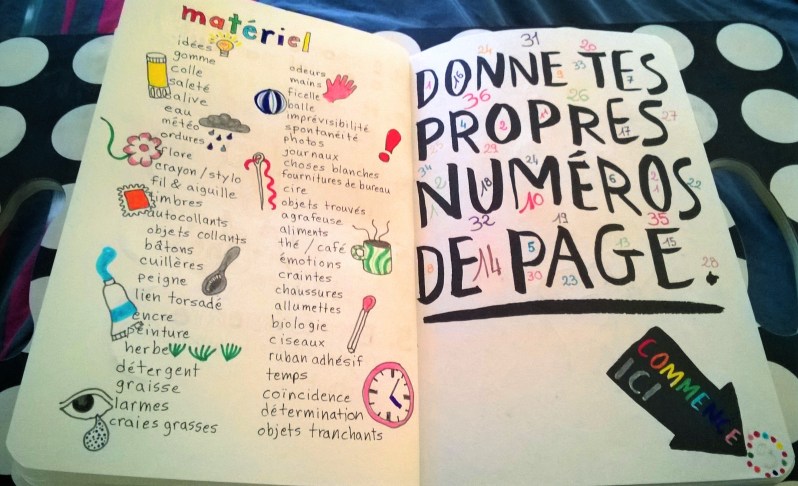 matériel
idées
gomme
colle
saleté
salive
eau
météo
ordures
flore
crayon/stylo
fil & aiguille
timbres
autocollants
objets collants
bâtons
cuillères
peigne
lien torsadé
encre
peinture
herbe
détergent
graisse
larmes
craies grasses
odeurs
mains
ficelle
balle
imprévisibilité
spontanéité
photos
journaux
choses blanches
fournitures de bureau
cire
objets trouvés
agrafeuse
aliments
thé / café
émotions
craintes
chaussures
allumettes
biologie
ciseaux
ruban adhésif
temps
coïncidence
détermination
objets tranchants
24 31 20
DONNE TES
1 16 9 33 7
36 26
PROPRES
4 2 17 27
29
34 24
NUMÉROS
18 10 6 22
32 19 35
DE PAGE.
14 5 13 15
30 23 28
COMMENCE
ICI